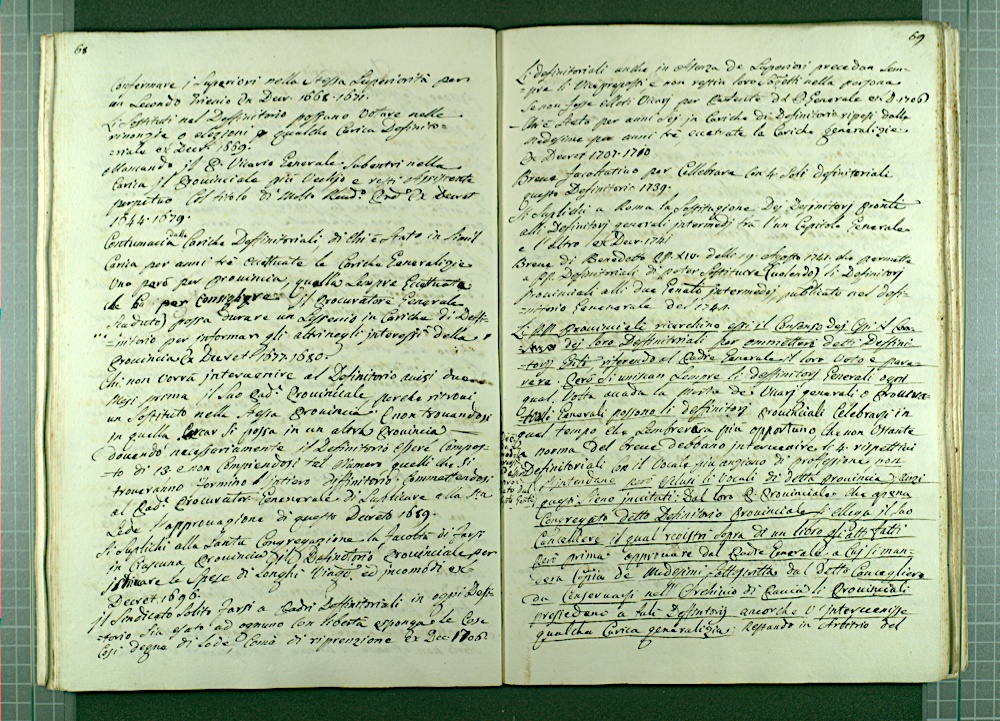 68
Confermare i Superiori nella stessa Superiorità per
un secondo Trienio Ex Decr. 1668. 1671.
Li sostituti nel Deffinitorio possano votare nelle
rinonzie o elezioni per qualche Carica Definito-
riale ex Decr. 1669.
Mancando il P. Vicario Generale subentri nella
Carica il Provinciale più Vecchio e resti Assistente
perpetuo Col titolo di Molto Rend.o Ex Decret
1644. 1679.
Contumacia dalle Cariche Deffinitoriali di Chi è stato in simil
Carica per anni tré eccettuate le Cariche Generalizie
Uno però per provincia, quella sempre Eccettuata
il Procuratore Generale
possa durare un sessenio in Cariche di Deffi-
nitorio per informar gli altri negl' interessi della
Provincia Ex Decret 1677. 1680.
Chi non vorrà intervenire al Definitorio avisi due
Mesi prima il suo Pad. Provinciale, perche ritrovi
un sostituto nella stessa Provincia e non trovandosi
in quella si possa in un altra Provincia
Dovendo necessariamente il Definitorio essere Compos-
to di 13. e non Compiendosi tal Numero quelli che si
troveranno formino l'intiero Difinitorio Commettendosi
al Pad. Procurator Generale di Suplicare alla Sta
Sede l'approvazione di questo Decreto 1689.
Si Suplichi alla Santa Congregazione la facoltà di farsi
in Ciascuna Provincia il Definitorio Provinciale per
le Spese di Longhi Viaggi ed incomodi ex
Decret 1696.
Il Sindicato Solito farsi a Padri Deffinitoriali in ogni Deff-
itorio sia esato ad ognuno con libertà esponga le Cose
Così degne di lode, Come di riprenzione Ex Dec 1706.
69
Li definitoriali anche in assenza de Superiori precedan sem-
pre li Vicepreposti e non restin loro Sogetti nella persona
se non fosse eletti Vicarj per del P. Generale ex D 1706
Chi è stato per anni sej in Cariche di Definitorio riposi dalle
medesime per anni tré, eccetuate le Cariche generalizie
Ex Decret 1707. 1760
Breve facoltativo per Cellebrare Con 4. Soli definitoriale
questo Definitorio 1739.
Si Suplichi a Roma la sostituzione Dei Definitorj
alli Definitorj generali intermedj trà l'un Capitolo Generale
e l'altro ex Decr. 1741
Breve di Benedetto PP. XIV. delli 19. Agosto 1741. che permette
a PP. Definitoriali di poter sostituire (volendo) li Definitorj
Provinciali alli due Generali intermedej publicato nel defi-
nitorio Generale del 1744.
Li PP. Provinciali ricerchino essi il Consenso dei
dei loro Deffinitoriali per ommettere detti Deffini-
torj riferendo al Padre Generale il loro Voto e pare-
re. Però si uniscan sempre li definitorj Generali ogni
qual Volta accada la Morte de Vicarj generali o Procura-
tori Generali possono li deffinitorj Provinciali Celebrarsi in
quel tempo che sembrerà più opportuno che non ostante
norma del breve debbano intervenire li 4. rispettivi
Definitoriali con il Vocale più anziano di professione non
s'intendano però esclusi li Vocali di detta provincia, anzi
questi sieno invitati: dal loro P. Provinciale che apena
Congregato detto Definitorio Provinciale si ellega il suo
Cancelliere il qual registri sopra di un libro gli atti fatti
però prima approvare dal Padre Generale a Cui si man-
derà Copia de Medesimi sottoscritta dal detto Cancegliere
da Conservarsi nell' Archivio di Pavia li Provinciali
presiedano a tali Deffinitorj ancorche v' intervenisse
qualche Carica generalizia: Restando in Arbitrio del